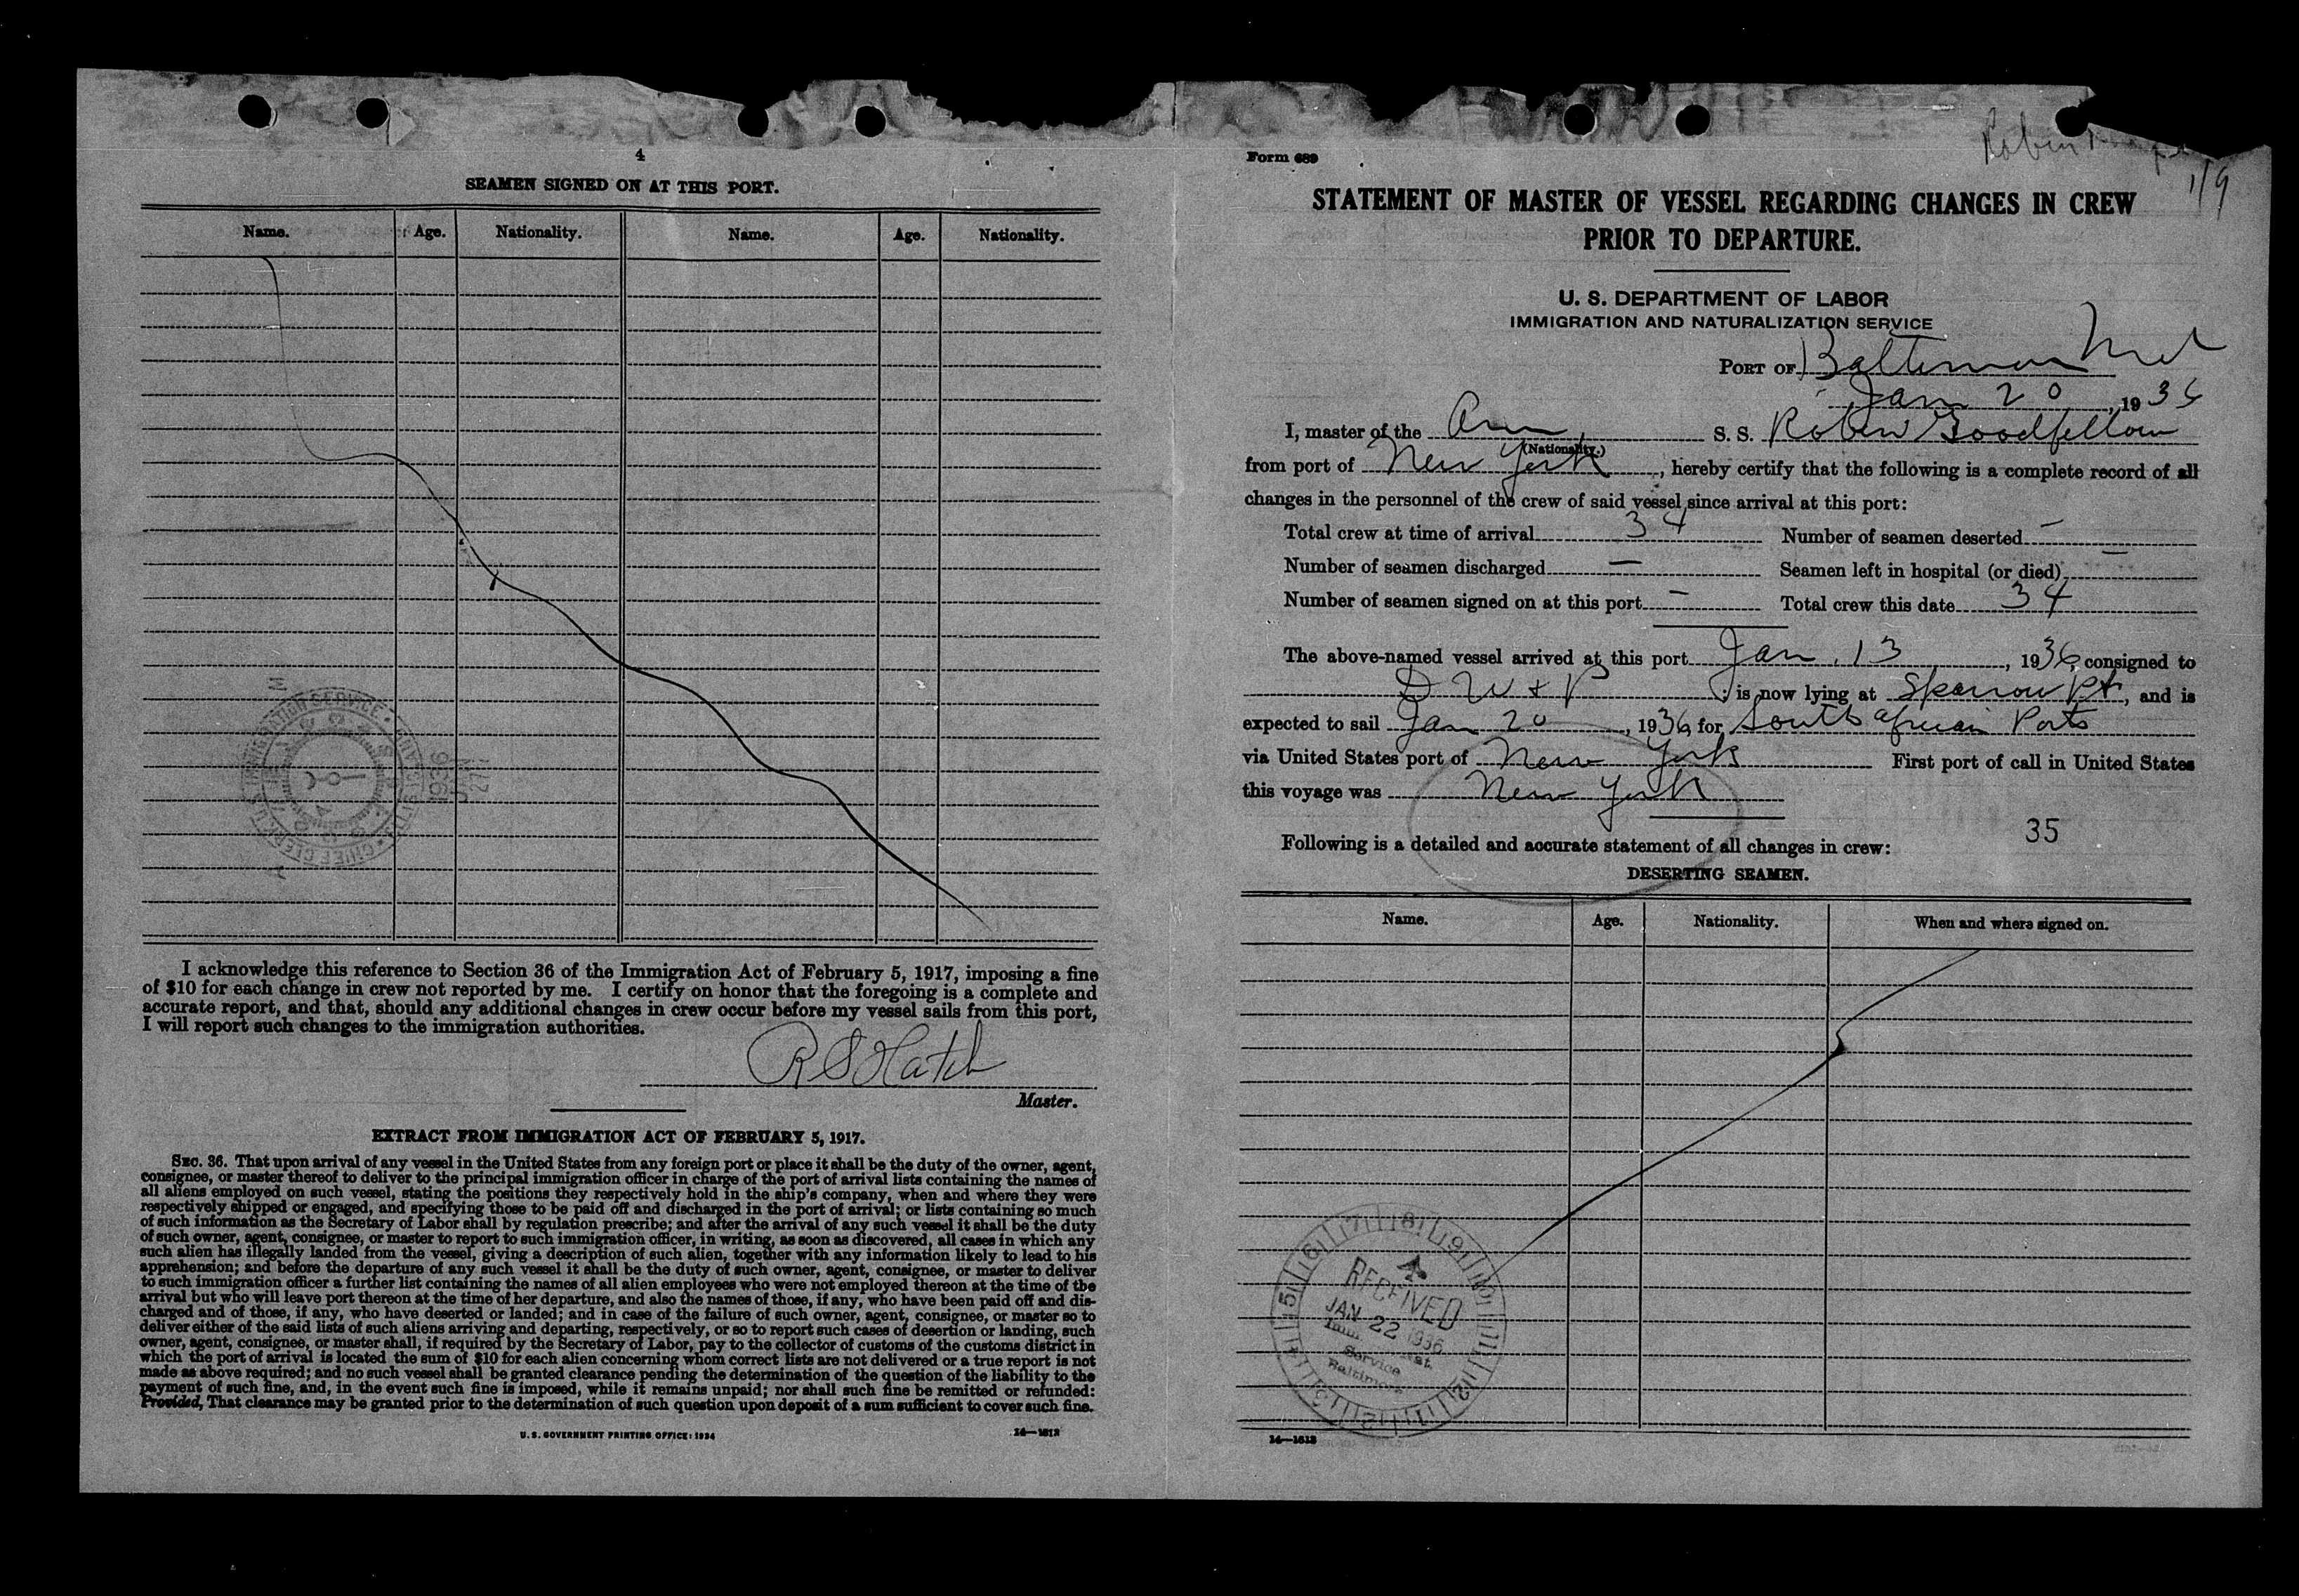 4
SEAMEN SIGNED ON AT THIS PORT.
Name. Age. Nationality. Name. Age. Nationality.
I acknowledge this reference to Section 36 of the Immigration Act of February 5, 1917, imposing a fine
of $10 for each change in crew not reported by me. I certify on honor that the foregoing is a complete and
accurate report, and that, should any additional changes in crew occur before my vessel sails from this port,
I will report such changes to the immigration authorities.
R S Hatch
Master.
EXTRACT FROM IMMIGRATION ACT OF FEBRUARY 5, 1917.
SEC. 36. That upon arrival of any vessel in the United States from any foreign port or place it shall be the duty of the owner, agent,
consignee, or master thereof to deliver to the principal immigration officer in charge of the port of arrival lists containing the names of
all aliens employed on such vessel, stating the positions they respectively hold in the ship's company, when and where they were
respectively shipped or engaged, and specifying those to be paid off and discharged in the port of arrival; or lists containing so much
of such information as the Secretary of Labor shall by regulation prescribe; and after the arrival of any such vessel it shall be the duty
of such owner, agent, consignee, or master to report to such immigration officer, in writing, as soon as discovered, all cases in which any
such alien has illegally landed from the vessel, giving a description of such alien, together with any information likely to lead to his
apprehension; and before the departure of any such vessel it shall be the duty of such owner, agent, consignee, or master to deliver
to such immigration officer a further list containing the names of all alien employees who were not employed thereon at the time of the
arrival but who will leave port thereon at the time of her departure, and also the names of those, if any, who have been paid off and dis-
charged and of those, if any, who have deserted or landed; and in case of the failure of such owner, agent, consignee, or master so to
deliver either of the said lists of such aliens arriving and departing, respectively, or so to report such cases of desertion or landing, such
owner, agent, consignee, or master shall, if required by the Secretary of Labor, pay to the collector of customs of the customs district in
which the port of arrival is located the sum of $10 for each alien concerning whom correct lists are not delivered or a true report is not
made as above required; and no such vessel shall be granted clearance pending the determination of the question of the liability to the
payment of such fine, and, in the event such fine is imposed, while it remains unpaid; nor shall such fine be remitted or refunded:
Provided, That clearance may be granted prior to the determination of such question upon deposit of a sum sufficient to cover such fine.
U. S. GOVERNMENT PRINTING OFFICE: 1934 14—1512
Form 689
Robin
1/9
STATEMENT OF MASTER OF VESSEL REGARDING CHANGES IN CREW
PRIOR TO DEPARTURE.
U. S. DEPARTMENT OF LABOR
IMMIGRATION AND NATURALIZATION SERVICE
PORT OF Baltimore Md
Jan 20, 1936
I, master of the Am S. S. Robin Goodfellow
(Nationality.)
from port of New York, hereby certify that the following is a complete record of all
changes in the personnel of the crew of said vessel since arrival at this port:
Total crew at time of arrival 34 Number of seamen deserted —
Number of seamen discharged — Seamen left in hospital (or died) —
Number of seamen signed on at this port — Total crew this date 34
The above-named vessel arrived at this port Jan. 13, 1936, consigned to
D W & P; is now lying at Sparrow Pt, and is
expected to sail Jan 20, 1936, for South African Ports
via United States port of New York First port of call in United States
this voyage was New York
35
Following is a detailed and accurate statement of all changes in crew:
DESERTING SEAMEN.
Name. Age. Nationality. When and where signed on.
RECEIVED
JAN 22 1936
Service
Baltimore
14—1512